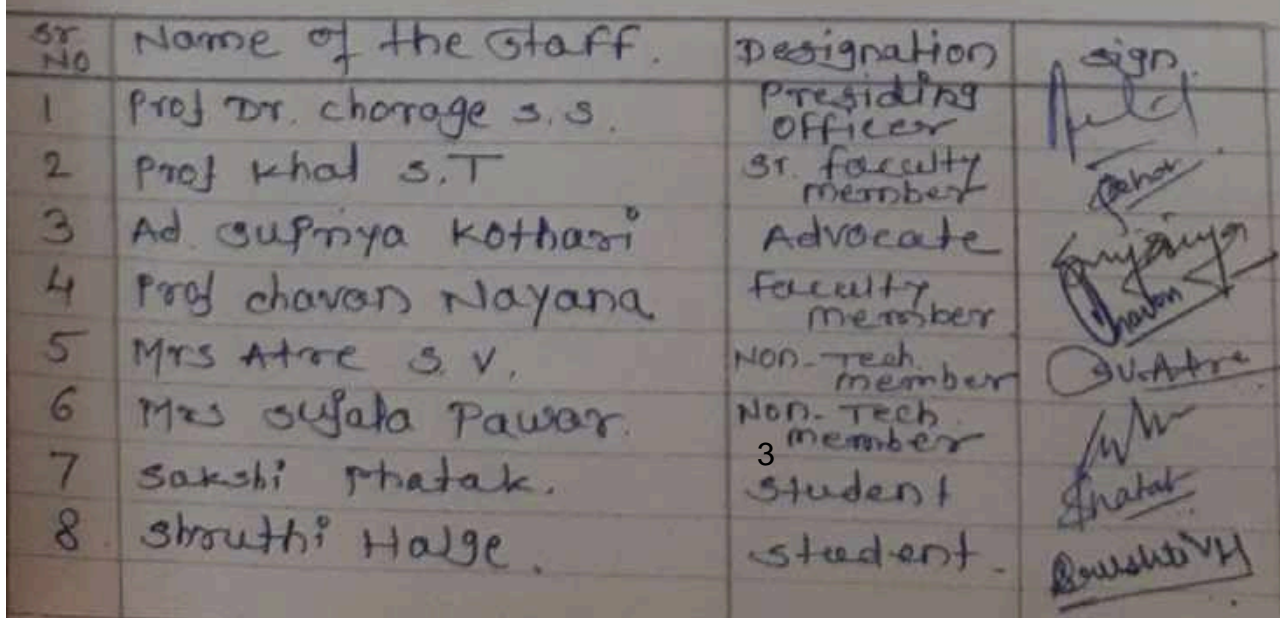 Sr No Name of the Staff. Designation sign.
1 Prof Dr. Chorage S.S. Presiding Officer
2 Prof Khal S.T Sr. faculty member
3 Ad. Supriya Kothari Advocate
4 Prof Chavan Nayana faculty member Chavan
5 Mrs Atre S.V. Non-Tech. member S.V.Atre
6 Mrs Sujata Pawar. Non-Tech. member
3
7 Sakshi Phatak. Student Phatak
8 Shruthi Halge. Student.